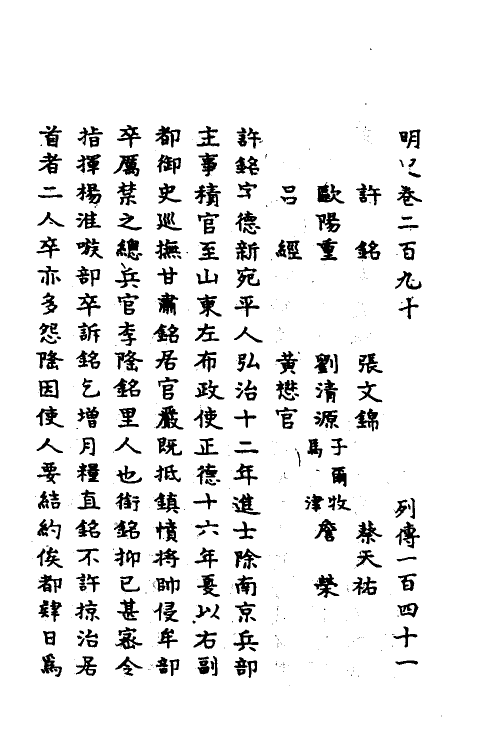 明史卷二百九十 列傳一百四十一
許銘 張文錦 蔡天祐
歐陽重 劉清源 子爾牧 馬津 詹榮
呂經 黃懋官
許銘字德新宛平人弘治十二年進士除南京兵部
主事積官至山東左布政使正德十六年夏以右副
都御史巡撫甘肅銘居官嚴既抵鎮憤將帥侵牟部
卒厲禁之總兵官李隆銘里人也銜銘抑已甚密令
指揮楊淮嗾部卒訴銘乞增月糧直銘不許掠治居
首者二人卒亦多怨隆因使人要結約俟都肄日爲